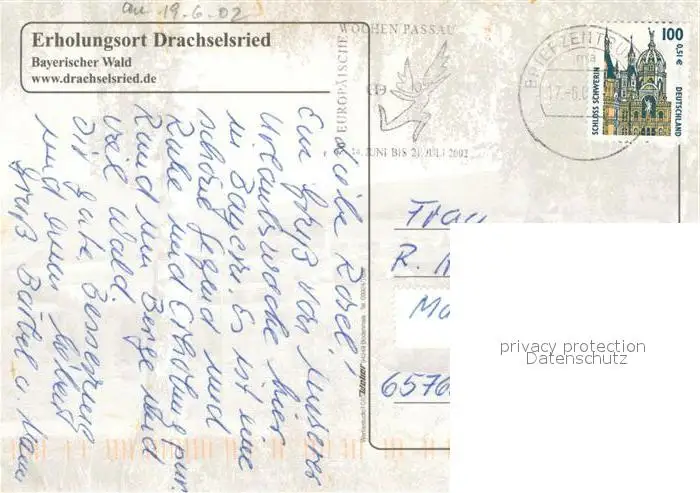 an 19.6.02
Erholungsort Drachselsried
Bayerischer Wald
www.drachselsried.de
Liebe Rosel!
Ein Gruß von unserer
Urlaubswoche hier
in Bayern. Es ist eine
schöne Gegend und
Ruhe und Erholung pur.
Rund um Berge und
viel Wald.
Dir gute Besserung
und einen lieben
Gruß Bärbel u. Mann
EUROPÄISCHE
WOCHEN PASSAU
JUNI BIS 21. JULI 2002
BRIEFZENTRUM
17.-6.0
100
0,51 €
SCHLOSS SCHWERIN
DEUTSCHLAND
Frau
R.
Mo
6576
privacy protection
Datenschutz